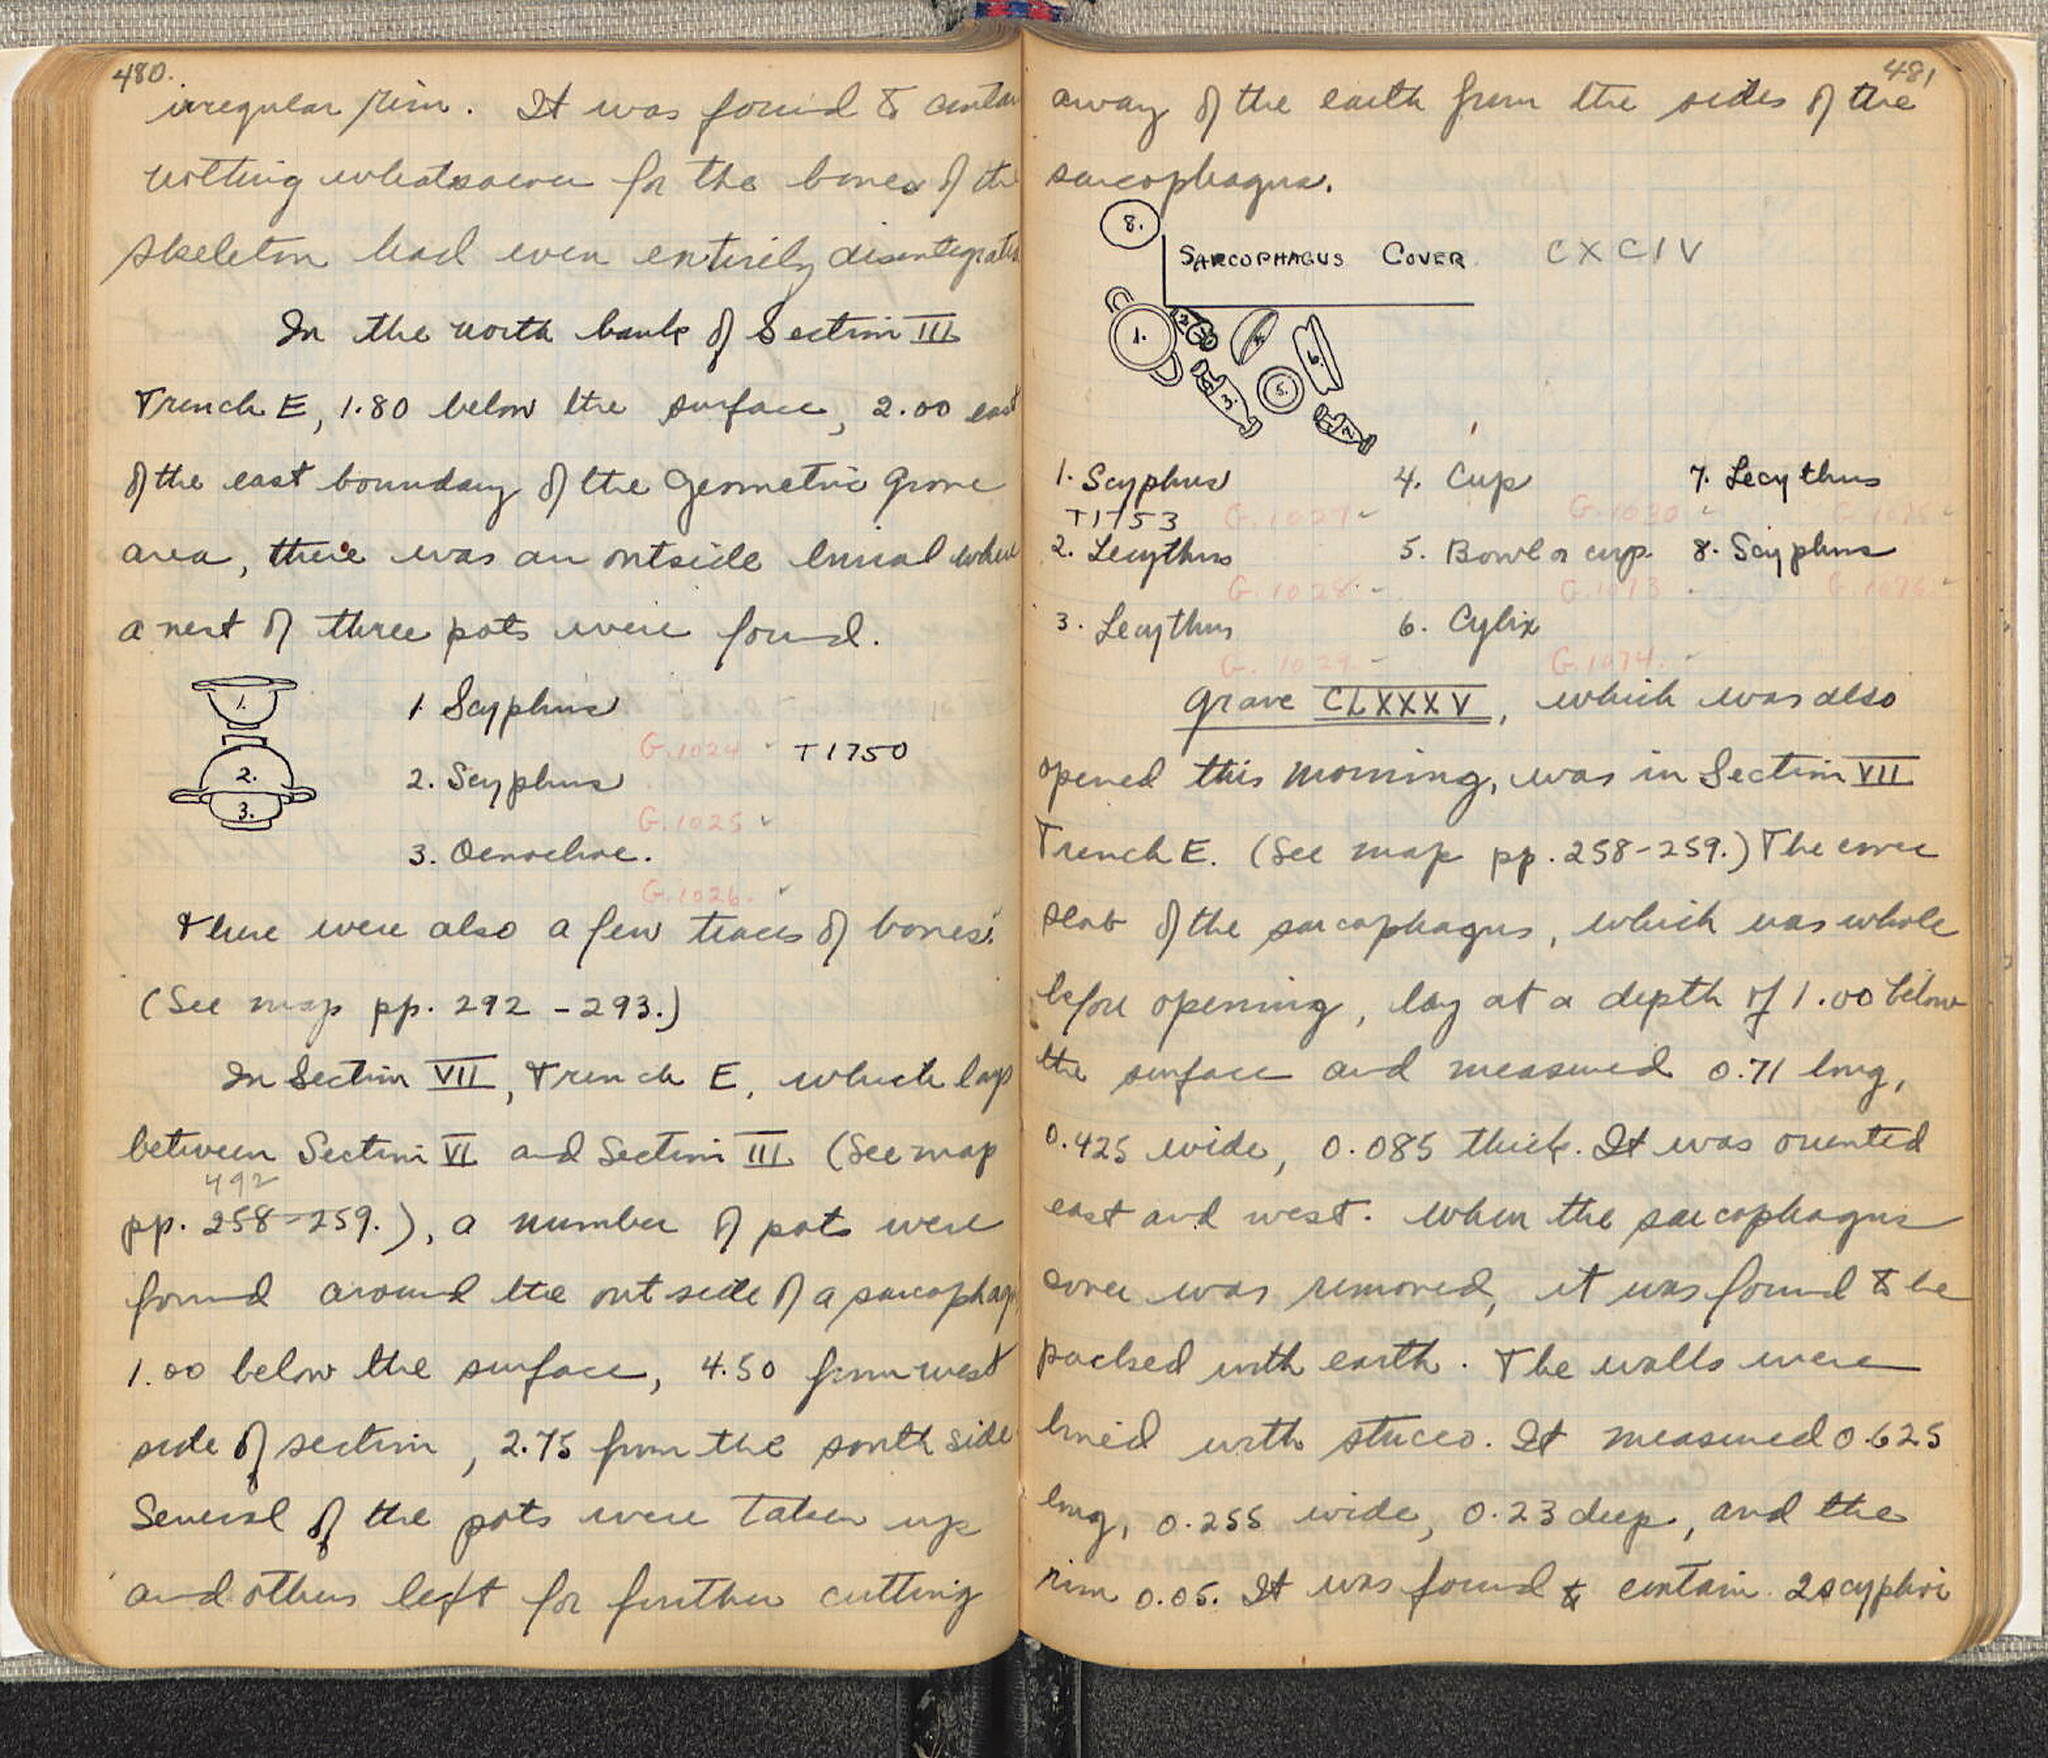 480.
irregular rim. It was found to contain
nothing whatsoever for the bones of the
skeleton had even entirely disintegrated
In the north bank of Section III
Trench E, 1.80 below the surface, 2.00 east
of the east boundary of the Geometric Grave
area, there was an outside burial where
a nest of three pots were found.
1.
2.
3.
1. Scyphus
G.1024 T1750
2. Scyphus
G.1025
3. Oenochoe.
G.1026.
There were also a few traces of bones.
(See map pp. 292-293.)
In Section VII, Trench E, which lays
between Section VI and Section III (See map
492
pp. 258-259.), a number of pots were
found around the outside of a sarcophag
1.00 below the surface, 4.50 from west
side of section, 2.75 from the south side
Several of the pots were taken up
and others left for further cutting
481
away of the earth from the sides of the
sarcophagus.
8.
SARCOPHAGUS COVER CXCIV
1.
2.
3.
4.
5.
6.
7.
1. Scyphus 4. Cup 7. Lecythus
T1753 G.1027 G.1030 G.1075
2. Lecythus 5. Bowl or cup. 8. Scyphus
G.1028. G.1073 G.1076.
3. Lecythus 6. Cylix
G.1029 G.1074.
Grave CLXXXV, which was also
opened this morning, was in Section VII
Trench E. (See map pp. 258-259.) The cover
slab of the sarcophagus, which was whole
before opening, lay at a depth of 1.00 below
the surface and measured 0.71 long,
0.425 wide, 0.085 thick. It was oriented
east and west. When the sarcophagus
cover was removed, it was found to be
packed with earth. The walls were
lined with stucco. It measured 0.625
long, 0.255 wide, 0.23 deep, and the
rim 0.05. It was found to contain 2 scyphoi